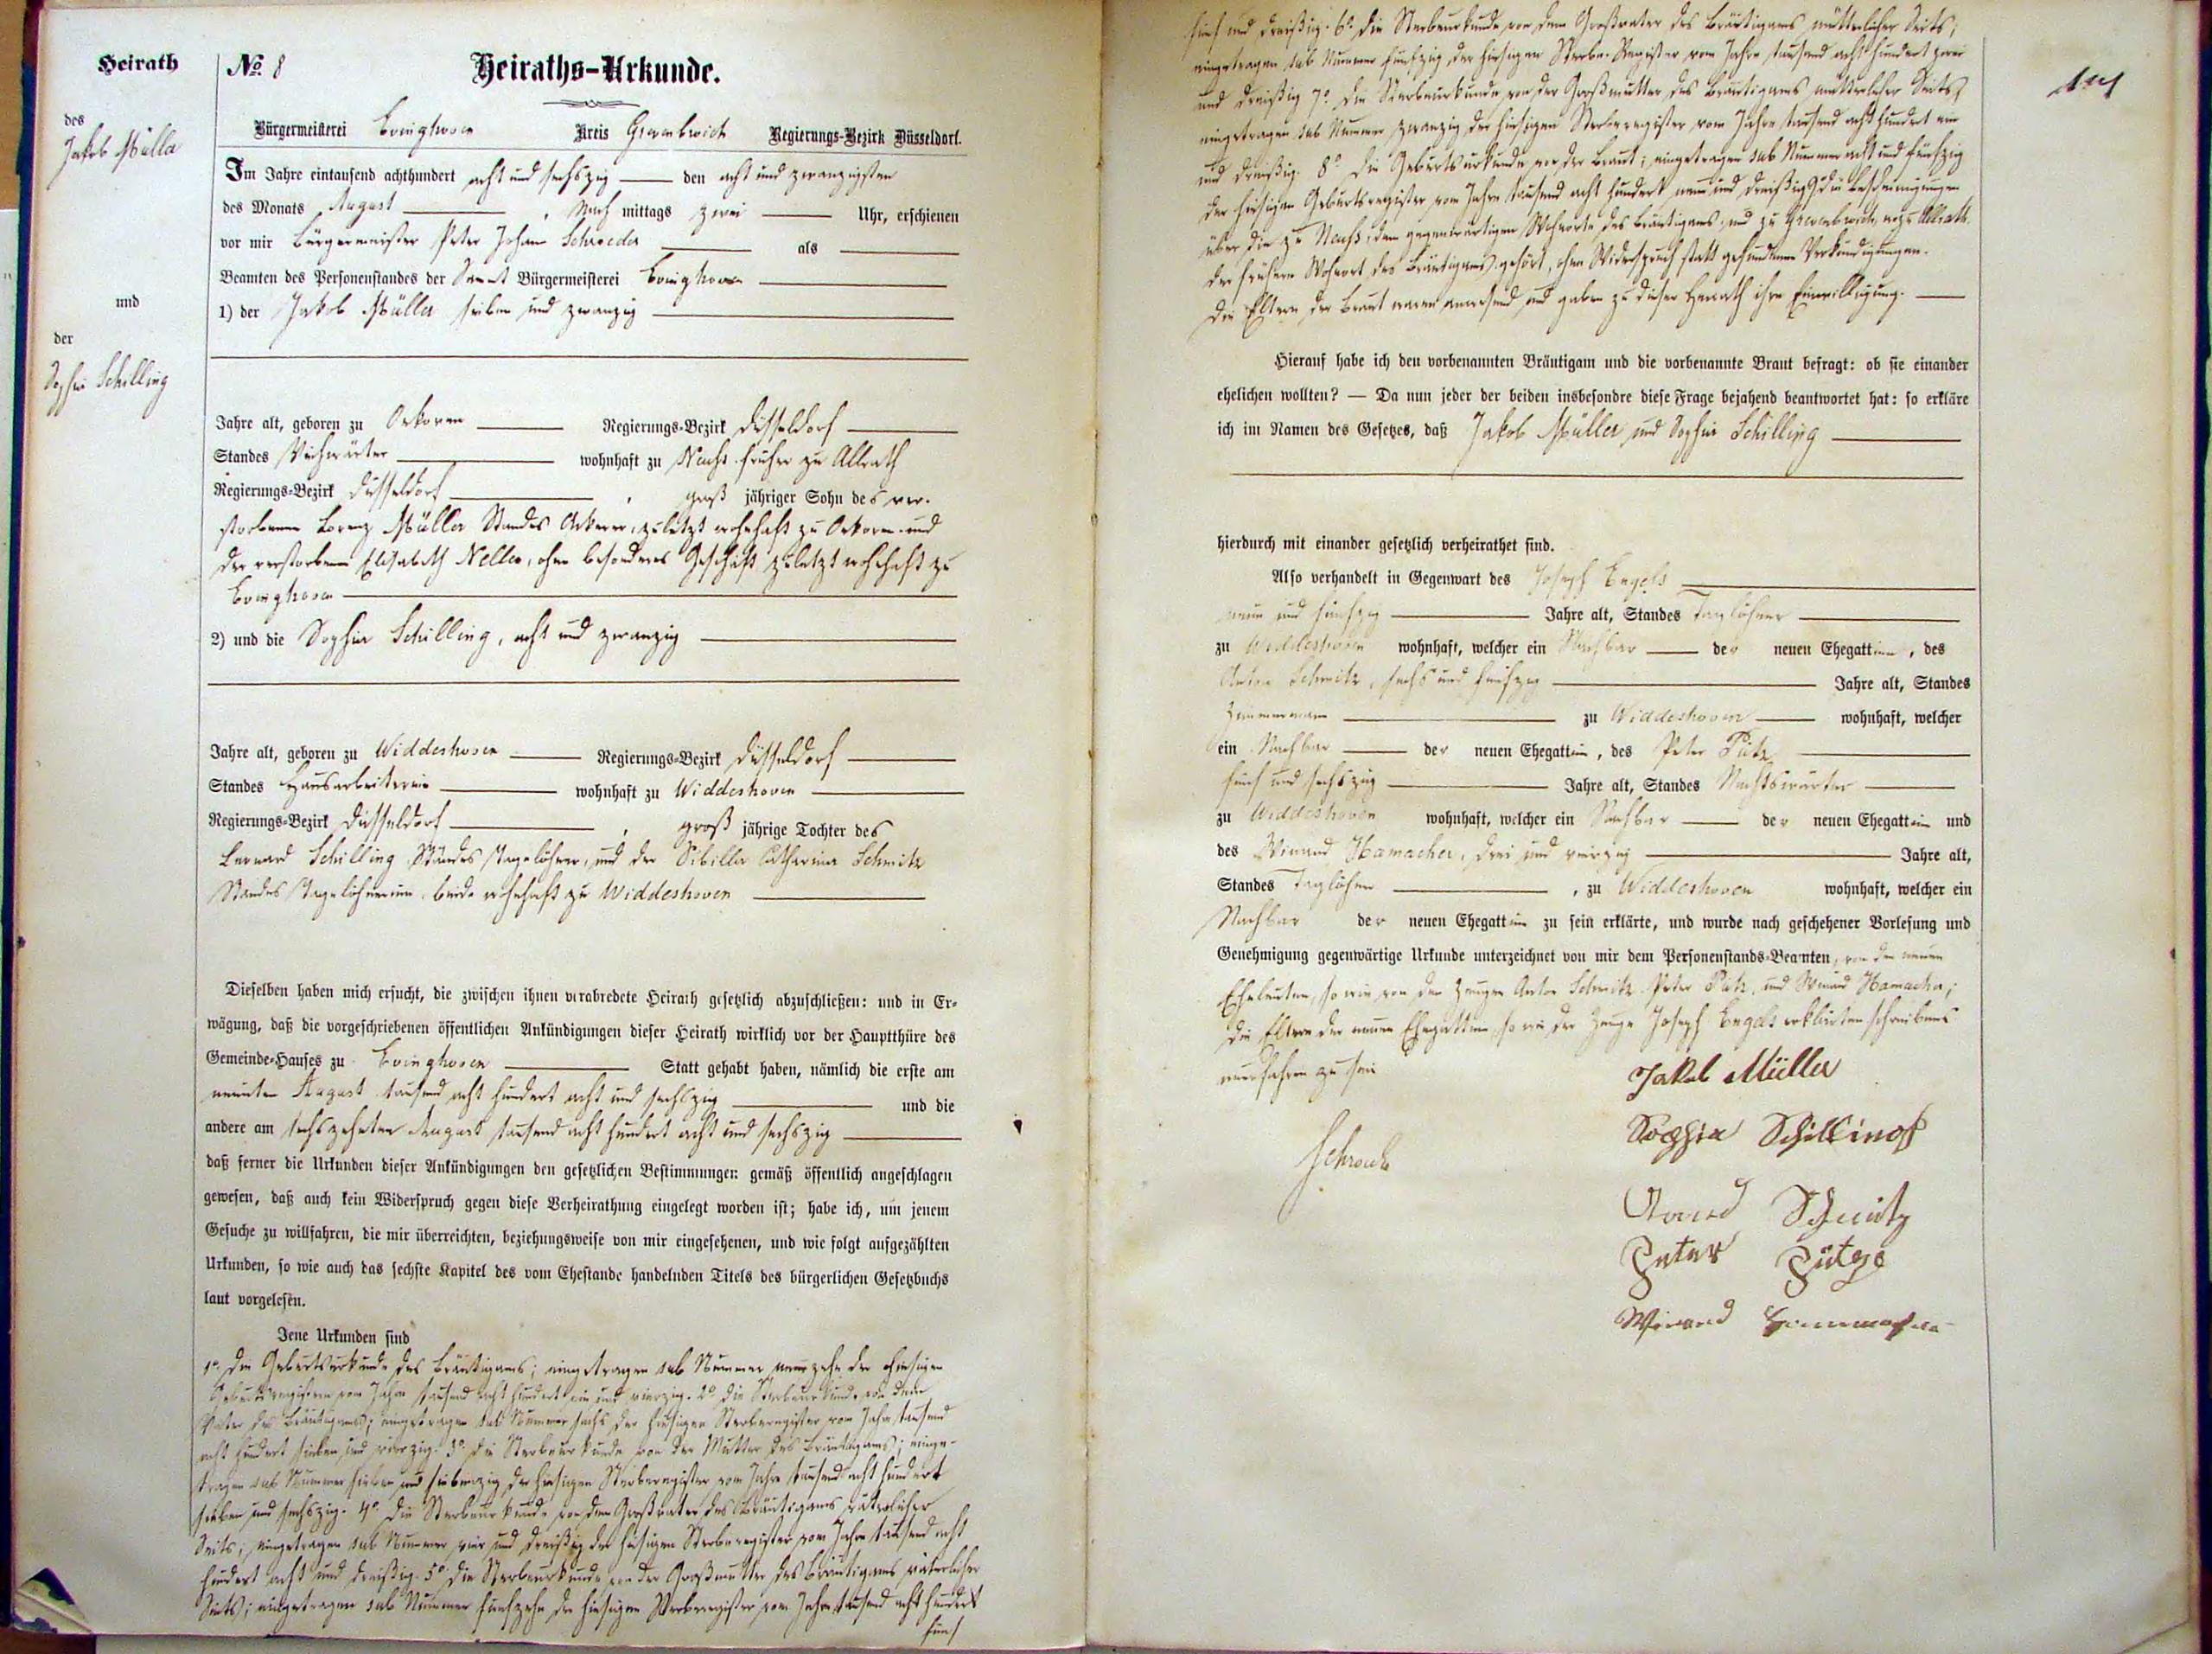 Heirath
des
Jakob Müller
und
der
Sophia Schilling
No. 8 Heiraths-Urkunde.
Bürgermeisterei Evinghoven Kreis Grevenbroich Regierungs-Bezirk Düsseldorf.
Im Jahre eintausend achthundert acht und sechszig den acht und zwanzigsten
des Monats August, Nach mittags zwei Uhr, erschienen
vor mir Bürgermeister Peter Johann Schroeder als
Beamten des Personenstandes der Samt Bürgermeisterei Evinghoven
1) der Jakob Müller sieben und zwanzig
Jahre alt, geboren zu Oekoven Regierungs-Bezirk Düsseldorf
Standes wohnhaft zu Neuss früher zu Allrath
Regierungs-Bezirk Düsseldorf, groß jähriger Sohn des ver-
storbenen Lorenz Müller Standes Ackerer, zuletzt wohnhaft zu Oekoven und
der verstorbenen Elisabeth Nelles, ohne besonderes Geschäft zuletzt wohnhaft zu
Evinghoven
2) und die Sophia Schilling, acht und zwanzig
Jahre alt, geboren zu Widdeshoven Regierungs-Bezirk Düsseldorf
Standes Hausarbeiterin wohnhaft zu Widdeshoven
Regierungs-Bezirk Düsseldorf, groß jährige Tochter des
Bernard Schilling Standes Tagelöhner, und der Sibilla Catharina Schmitz
Standes Tagelöhnerinn, beide wohnhaft zu Widdeshoven
Dieselben haben mich ersucht, die zwischen ihnen verabredete Heirath gesetzlich abzuschließen: und in Er-
wägung, daß die vorgeschriebenen öffentlichen Ankündigungen dieser Heirath wirklich vor der Hauptthüre des
Gemeinde-Hauses zu Evinghoven Statt gehabt haben, nämlich die erste am
neunten August tausend acht hundert acht und sechszig und die
andere am sechszehnten August tausend acht hundert acht und sechszig
daß ferner die Urkunden dieser Ankündigungen den gesetzlichen Bestimmungen gemäß öffentlich angeschlagen
gewesen, daß auch kein Widerspruch gegen diese Verheirathung eingelegt worden ist; habe ich, um jenem
Gesuche zu willfahren, die mir überreichten, beziehungsweise von mir eingesehenen, und wie folgt aufgezählten
Urkunden, so wie auch das sechste Kapitel des vom Ehestande handelnden Titels des bürgerlichen Gesetzbuchs
laut vorgelesen.
Jene Urkunden sind
1º. Die Geburtsurkunde des Bräutigams; eingetragen sub Nummer neunzehn der hiesigen
Geburtsregister vom Jahre tausend acht hundert ein und vierzig. 2º Die Sterbeurkunde von dem
Vater des Bräutigams; eingetragen sub Nummer sechs der hiesigen Sterberegister vom Jahre tausend
acht hundert sieben und vierzig. 3º Die Sterbeurkunde von der Mutter des Bräutigams; einge-
tragen sub Nummer sieben und siebenzig der hiesigen Sterberegister vom Jahre tausend acht hundert
sieben und sechszig. 4º Die Sterbeurkunde von dem Großvater des Bräutigams väterlicher
Seits; eingetragen sub Nummer vier und dreißig der hiesigen Sterberegister vom Jahre tausend acht
hundert acht und dreißig. 5º Die Sterbeurkunde von der Großmutter des Bräutigams väterlicher
Seits; eingetragen sub Nummer fünfzehn der hiesigen Sterberegister vom Jahre tausend acht hundert
fünf
fünf und dreißig. 6º. Die Sterbeurkunde von dem Großvater des Bräutigams mütterlicher Seits;
eingetragen sub Nummer fünfzig der hiesigen Sterbe-Register vom Jahre tausend acht hundert zwei
und dreißig 7º. Die Sterbeurkunde von der Großmutter des Bräutigams mütterlicher Seits,
eingetragen sub Nummer zwanzig der hiesigen Sterberegister vom Jahre tausend acht hundert ein
und dreißig. 8º Die Geburtsurkunde von der Braut; eingetragen sub Nummer acht und fünfzig
der hiesigen Geburtsregister vom Jahre tausend acht hundert neun und dreißig 9º die Bescheinigungen
über die zu Neuss, dem gegenwärtigen Wohnorte des Bräutigams, und zu Grevenbroich, wozu Allrath
der frühere Wohnort des Bräutigams gehört, ohne Widerspruch statt gefundenen Verkündigungen.
Die Eltern der Braut waren anwesend und gaben zu dieser Heirath ihre Einwilligung.
Hierauf habe ich den vorbenannten Bräutigam und die vorbenannte Braut befragt: ob sie einander
ehelichen wollten? — Da nun jeder der beiden insbesondre diese Frage bejahend beantwortet hat: so erkläre
ich im Namen des Gesetzes, daß Jakob Müller und Sophia Schilling
hierdurch mit einander gesetzlich verheirathet sind.
Also verhandelt in Gegenwart des Joseph Engels
neun und fünfzig Jahre alt, Standes Taglöhner
zu Widdeshoven wohnhaft, welcher ein Nachbar der neuen Ehegattinn, des
Anton Schmitz, sechs und fünfzig Jahre alt, Standes
Zimmermann zu Widdeshoven wohnhaft, welcher
ein Nachbar der neuen Ehegattinn, des Peter Pütz
fünf und sechszig Jahre alt, Standes Nachtswärter
zu Widdeshoven wohnhaft, welcher ein Nachbar der neuen Ehegattinn und
des Winand Hamacher, drei und vierzig Jahre alt,
Standes Taglöhner, zu Widdeshoven wohnhaft, welcher ein
Nachbar der neuen Ehegattinn zu sein erklärte, und wurde nach geschehener Vorlesung und
Genehmigung gegenwärtige Urkunde unterzeichnet von mir dem Personenstands-Beamten, von den neuen
Eheleuten, so wie von den Zeugen Anton Schmitz Peter Pütz, und Winand Hamacher;
die Eltern der neuen Ehegattinn, so wie der Zeuge Joseph Engels erklärten schreibens
unerfahren zu sein
Jakob Müller
Sophia Schilling
Schmitz
Peter Pütz
Winand